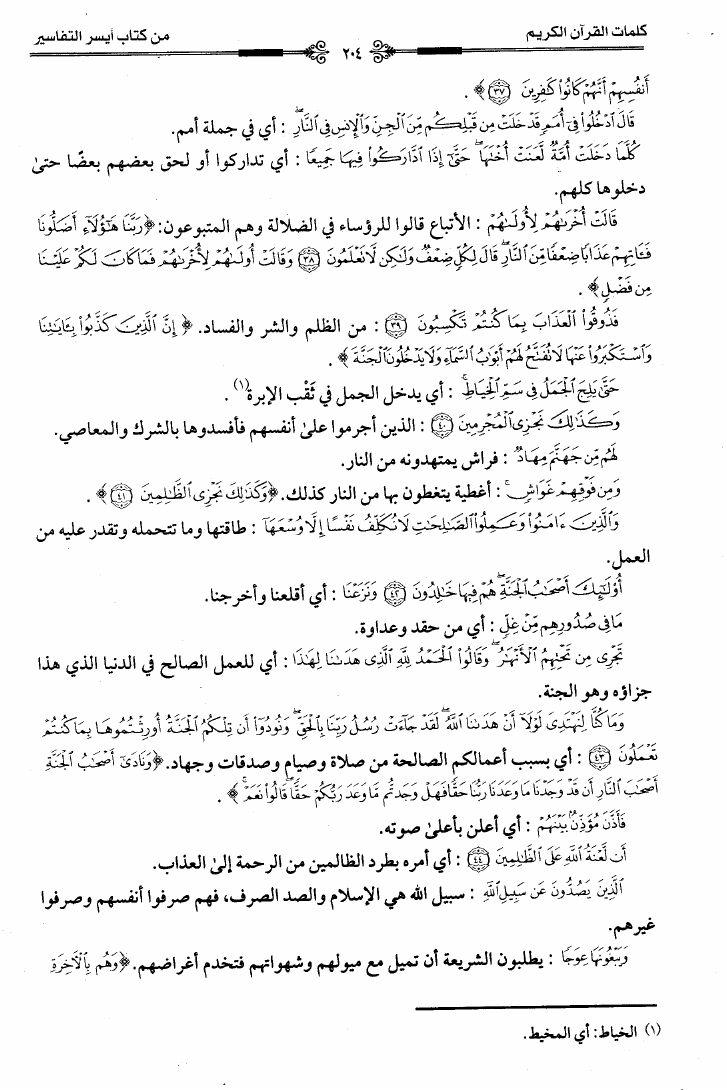 كلمات القرآن الكريم
٢٠٤
من كتاب أيسر التفاسير
أَنفُسِهِمْ أَنَّهُمْ كَانُوا۟ كَٰفِرِينَ ﴿٣٧﴾ .
قَالَ ٱدْخُلُوا۟ فِىٓ أُمَمٍ قَدْ خَلَتْ مِن قَبْلِكُم مِّنَ ٱلْجِنِّ وَٱلْإِنسِ فِى ٱلنَّارِ ۖ : أي في جملة أمم.
كُلَّمَا دَخَلَتْ أُمَّةٌ لَّعَنَتْ أُخْتَهَا ۖ حَتَّىٰٓ إِذَا ٱدَّارَكُوا۟ فِيهَا جَمِيعًا : أي تداركوا أو لحق بعضهم بعضًا حتىٰ
دخلوها كلهم.
قَالَتْ أُخْرَىٰهُمْ لِأُولَىٰهُمْ : الأتباع قالوا للرؤساء في الضلالة وهم المتبوعون: ﴿رَبَّنَا هَٰٓؤُلَآءِ أَضَلُّونَا
فَـَٔاتِهِمْ عَذَابًا ضِعْفًا مِّنَ ٱلنَّارِ ۖ قَالَ لِكُلٍّ ضِعْفٌ وَلَٰكِن لَّا نَعْلَمُونَ ﴿٣٨﴾ وَقَالَتْ أُولَىٰهُمْ لِأُخْرَىٰهُمْ فَمَا كَانَ لَكُمْ عَلَيْنَا
مِن فَضْلٍ﴾ .
فَذُوقُوا۟ ٱلْعَذَابَ بِمَا كُنتُمْ تَكْسِبُونَ ﴿٣٩﴾ : من الظلم والشر والفساد. ﴿ إِنَّ ٱلَّذِينَ كَذَّبُوا۟ بِـَٔايَٰتِنَا
وَٱسْتَكْبَرُوا۟ عَنْهَا لَا تُفَتَّحُ لَهُمْ أَبْوَٰبُ ٱلسَّمَآءِ وَلَا يَدْخُلُونَ ٱلْجَنَّةَ ﴾ .
حَتَّىٰ يَلِجَ ٱلْجَمَلُ فِى سَمِّ ٱلْخِيَاطِ ۚ : أي يدخل الجمل في ثَقْب الإبرة(١) .
وَكَذَٰلِكَ نَجْزِى ٱلْمُجْرِمِينَ ﴿٤٠﴾ : الذين أجرموا علىٰ أنفسهم فأفسدوها بالشرك والمعاصي.
لَهُم مِّن جَهَنَّمَ مِهَادٌ : فراش يمتهدونه من النار.
وَمِن فَوْقِهِمْ غَوَاشٍ ۚ : أغطية يتغطون بها من النار كذلك. ﴿وَكَذَٰلِكَ نَجْزِى ٱلظَّٰلِمِينَ ﴿٤١﴾﴾ .
وَٱلَّذِينَ ءَامَنُوا۟ وَعَمِلُوا۟ ٱلصَّٰلِحَٰتِ لَا نُكَلِّفُ نَفْسًا إِلَّا وُسْعَهَآ : طاقتها وما تتحمله وتقدر عليه من
العمل.
أُو۟لَٰٓئِكَ أَصْحَٰبُ ٱلْجَنَّةِ ۖ هُمْ فِيهَا خَٰلِدُونَ ﴿٤٢﴾ وَنَزَعْنَا : أي أقلعنا وأخرجنا.
مَا فِى صُدُورِهِم مِّنْ غِلٍّ : أي من حقد وعداوة.
تَجْرِى مِن تَحْتِهِمُ ٱلْأَنْهَٰرُ ۖ وَقَالُوا۟ ٱلْحَمْدُ لِلَّهِ ٱلَّذِى هَدَىٰنَا لِهَٰذَا : أي للعمل الصالح في الدنيا الذي هذا
جزاؤه وهو الجنة.
وَمَا كُنَّا لِنَهْتَدِىَ لَوْلَآ أَنْ هَدَىٰنَا ٱللَّهُ ۖ لَقَدْ جَآءَتْ رُسُلُ رَبِّنَا بِٱلْحَقِّ ۖ وَنُودُوٓا۟ أَن تِلْكُمُ ٱلْجَنَّةُ أُورِثْتُمُوهَا بِمَا كُنتُمْ
تَعْمَلُونَ ﴿٤٣﴾ : أي بسبب أعمالكم الصالحة من صلاة وصيام وصدقات وجهاد. ﴿وَنَادَىٰٓ أَصْحَٰبُ ٱلْجَنَّةِ
أَصْحَٰبَ ٱلنَّارِ أَن قَدْ وَجَدْنَا مَا وَعَدَنَا رَبُّنَا حَقًّا فَهَلْ وَجَدتُّم مَّا وَعَدَ رَبُّكُمْ حَقًّا ۖ قَالُوا۟ نَعَمْ ۚ ﴾ .
فَأَذَّنَ مُؤَذِّنٌۢ بَيْنَهُمْ : أي أعلن بأعلىٰ صوته.
أَن لَّعْنَةُ ٱللَّهِ عَلَى ٱلظَّٰلِمِينَ ﴿٤٤﴾ : أي أمره بطرد الظالمين من الرحمة إلىٰ العذاب.
ٱلَّذِينَ يَصُدُّونَ عَن سَبِيلِ ٱللَّهِ : سبيل الله هي الإسلام والصد الصرف، فهم صرفوا أنفسهم وصرفوا
غيرهم.
وَيَبْغُونَهَا عِوَجًا : يطلبون الشريعة أن تميل مع ميولهم وشهواتهم فتخدم أغراضهم. ﴿وَهُم بِٱلْـَٔاخِرَةِ
(١) الخياط: أي المخيط.